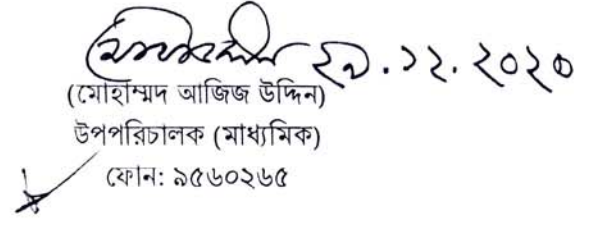 ২৯.১২.২০২০
(মোহাম্মদ আজিজ উদ্দিন)
উপপরিচালক (মাধ্যমিক)
ফোন: ৯৫৬০২৬৫